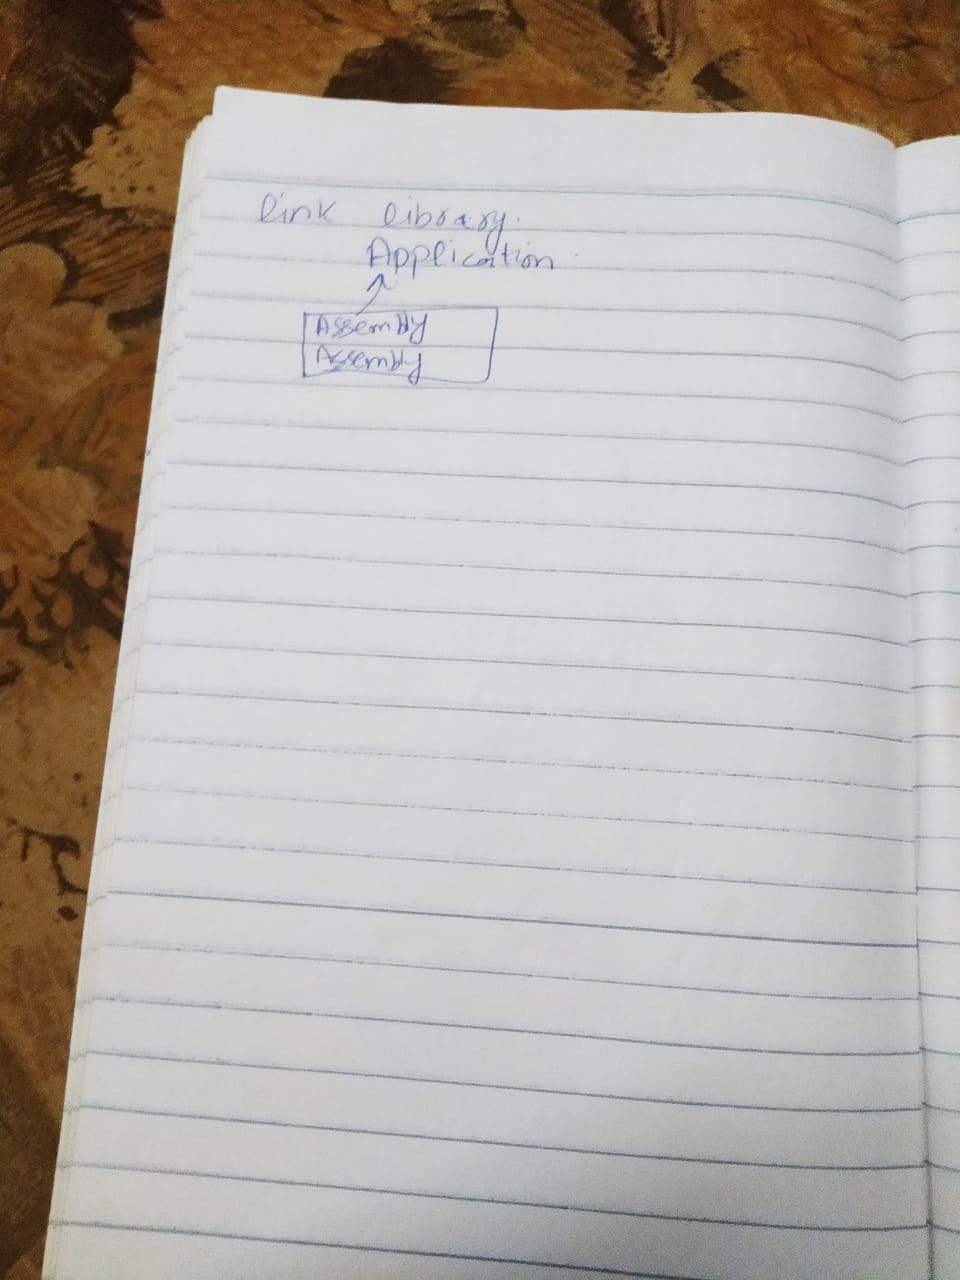 link library.
Application
Assembly
Assembly